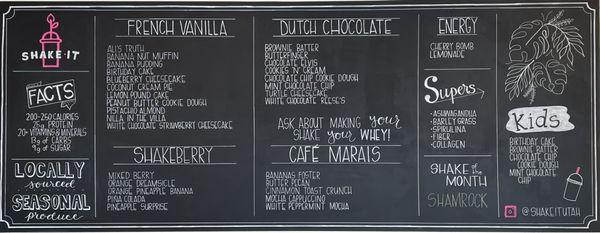 SHAKE·IT
FACTS
200-250 CALORIES
25g PROTEIN
20+ VITAMINS & MINERALS
13g of CARBS
9g of SUGAR
LOCALLY
sourced
SEASONAL
produce
FRENCH VANILLA
ALI'S TRUTH
BANANA NUT MUFFIN
BANANA PUDDING
BIRTHDAY CAKE
BLUEBERRY CHEESECAKE
COCONUT CREAM PIE
LEMON POUND CAKE
PEANUT BUTTER COOKIE DOUGH
PISTACHIO ALMOND
NILLA IN THE VILLA
WHITE CHOCOLATE STRAWBERRY CHEESECAKE
SHAKEBERRY
MIXED BERRY
ORANGE DREAMSICLE
ORANGE PINEAPPLE BANANA
PIÑA COLADA
PINEAPPLE SURPRISE
DUTCH CHOCOLATE
BROWNIE BATTER
BUTTERFINGER
CHOCOLATE ELVIS
COOKIES 'N' CREAM
CHOCOLATE CHIP COOKIE DOUGH
MINT CHOCOLATE CHIP
TURTLE CHEESECAKE
WHITE CHOCOLATE REESE'S
ASK ABOUT MAKING your
SHAKE your WHEY!
CAFÉ MARAIS
BANANAS FOSTER
BUTTER PECAN
CINNAMON TOAST CRUNCH
MOCHA CAPPUCCINO
WHITE PEPPERMINT MOCHA
ENERGY
CHERRY BOMB
LEMONADE
Supers
• ASHWAGANDHA
• BARLEY GRASS
• SPIRULINA
• FIBER
• COLLAGEN
SHAKE of the
MONTH
SHAMROCK
Kids
BIRTHDAY CAKE
BROWNIE BATTER
CHOCOLATE CHIP
COOKIE DOUGH
MINT CHOCOLATE
CHIP
@SHAKEITUTAH